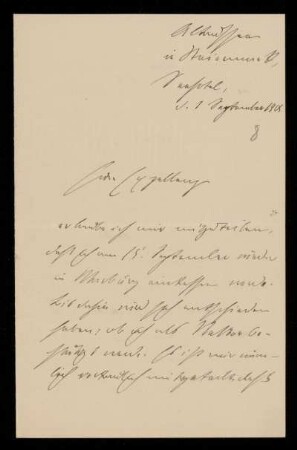 Altaussee
in Steiermark,
Seehotel,
d. 1 September 1908
8
Euer Exzellenz
erlaube ich mir mitzuteilen,
daß ich am 15. September wieder
in Marburg eintreffen werde.
Bis dahin wird sich entschieden
haben, ob ich als Rektor be-
stätigt werde. Es ist mir näm-
lich vertraulich mitgeteilt, daß